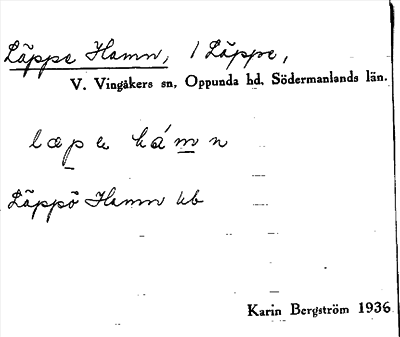 Läppe Hamn, / Läppe,
V. Vingåkers sn, Oppunda hd, Södermanlands län.
læpe hámn
Läppö Hamn kb
Karin Bergström 1936